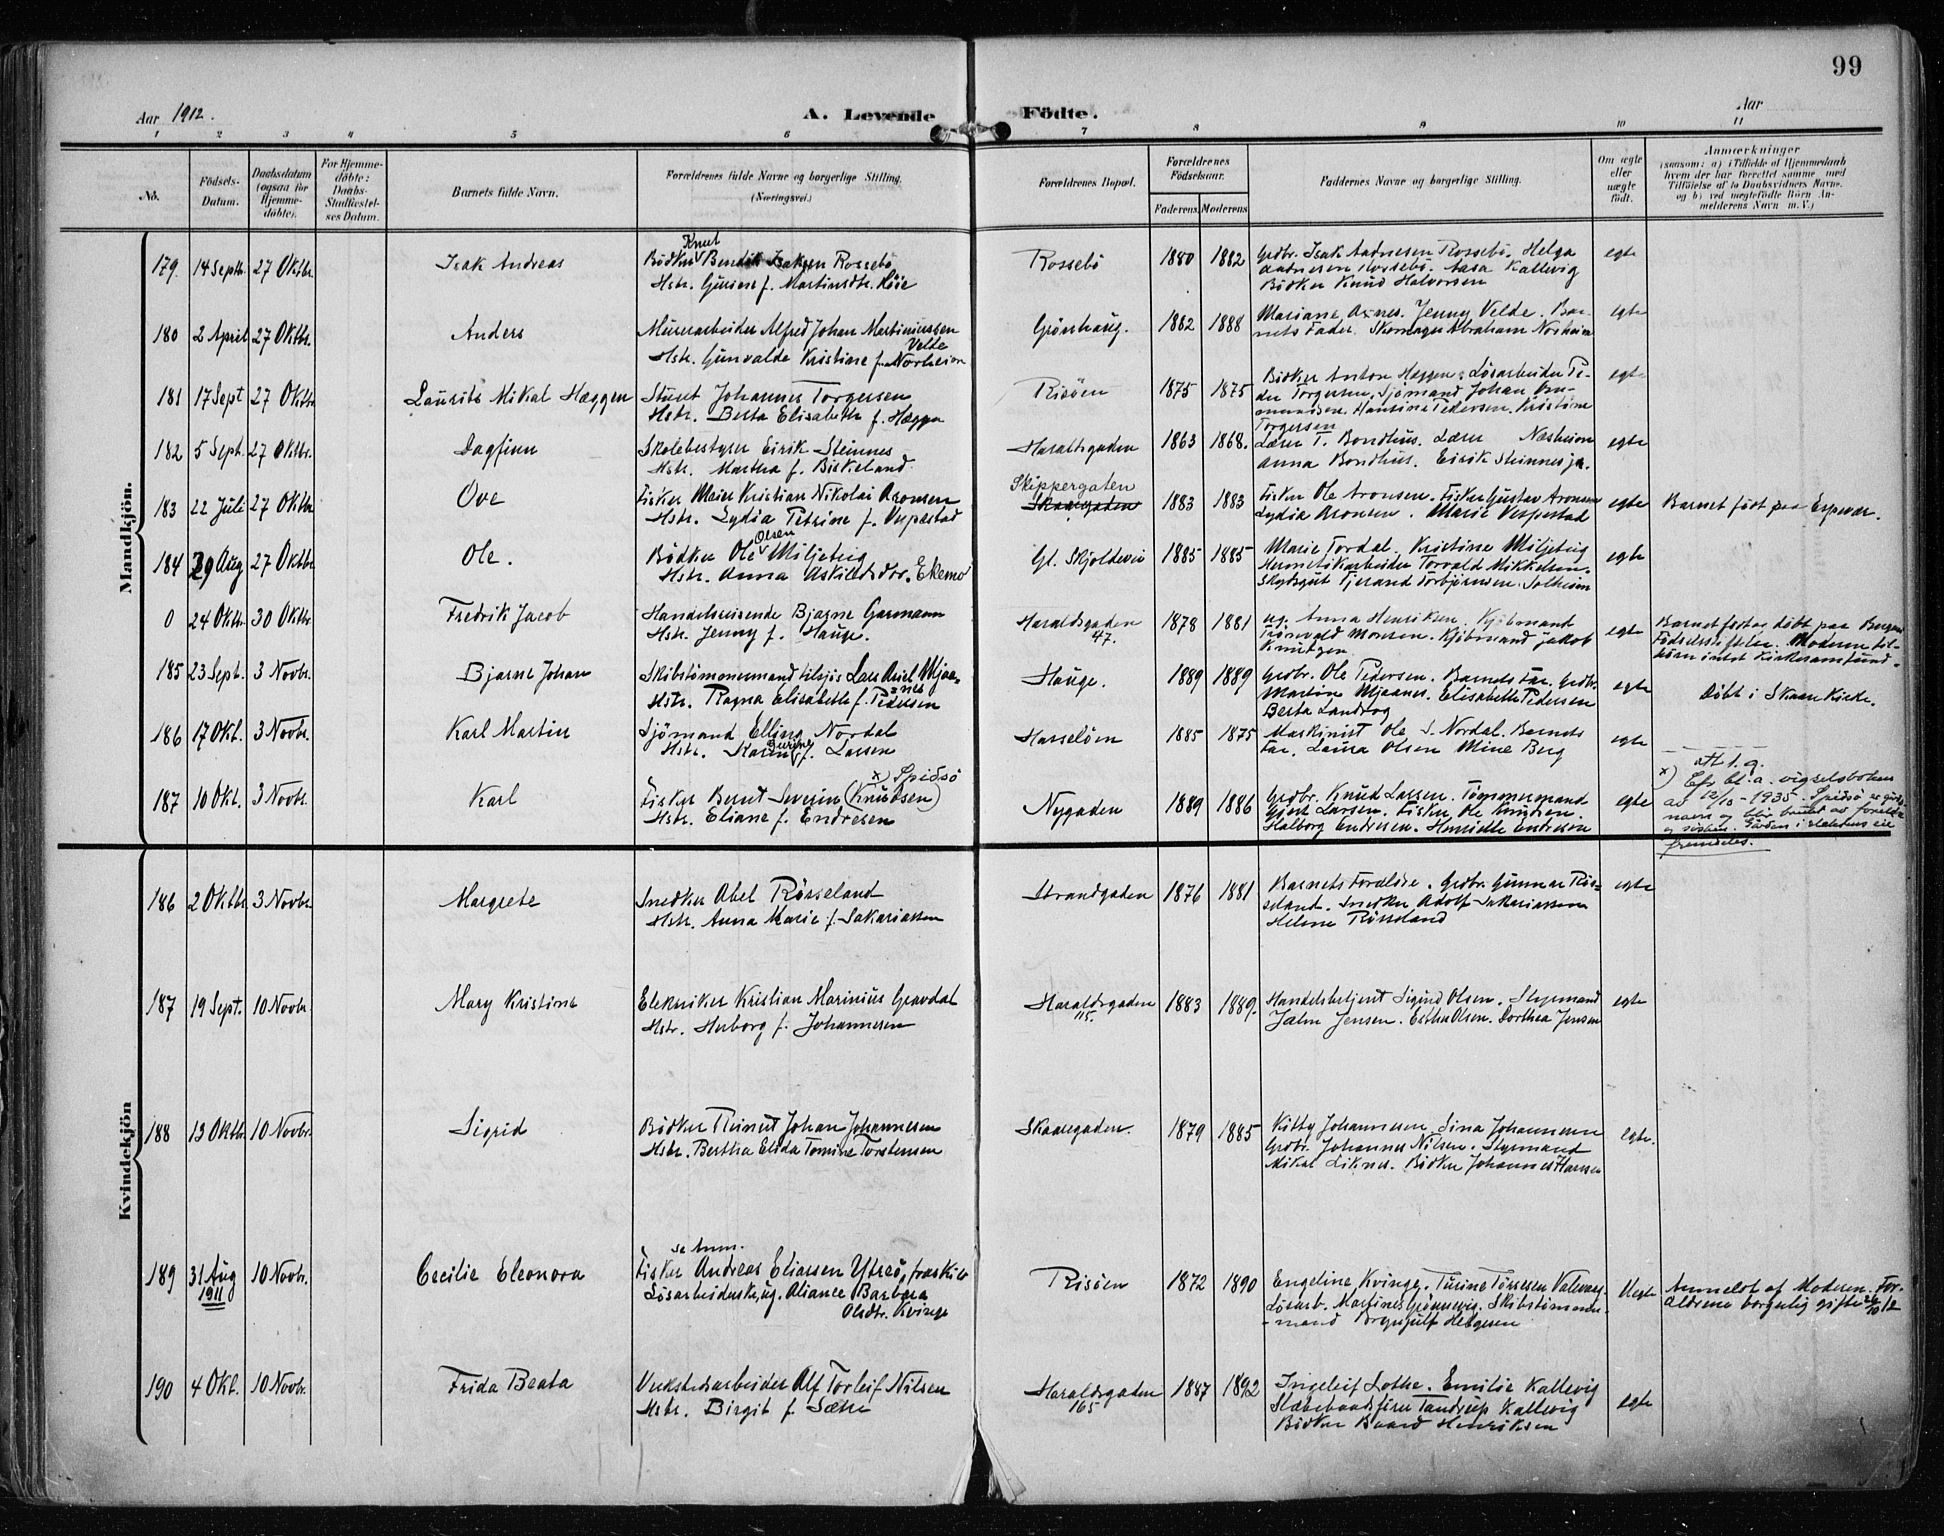 99
Aar 1912.
A. Levende Födte.
Aar
1 2 3 4 5 6 7 8 9 10 11
No.
Födsels-Datum.
Daabsdatum (ogsaa for Hjemme-döbte).
For Hjemme-döbte: Daabs-Stadfæstel-ses Datum.
Barnets fulde Navn.
Forældrenes fulde Navne og borgerlige Stilling. (Næringsvei.)
Forældrenes Bopæl.
Forældrenes Födselsaar.
Faderens. Moderens
Faddernes Navne og borgerlige Stilling.
Om ægte eller uægte født.
Anmærkninger
(saasom: a) i Tilfælde af Hjemmedaab
hvem der har forrettet samme, med
Tilföielse af to Daabsvidners Navne.
og b) ved uægtefödte Börn An-
melderens Navn m. V.)
Mandkjön.
179. 14 Septb. 27 Oktbr. Isak Andreas
Knut
Bødker Bendik Isaksen Rossebø
Hstr. Gurine f. Martinsdtr. Høie
Rossebø 1880 1882
Grdbr. Isak Andresen Rossebø. Helga
Andresen Rossebø. Aasa Kallevig
Bødker Knud Halvorsen
egte
180 2 April 27 Oktbr. Anders
Murerarbeider Alfred Johan Martiniussen
Velde
Hstr. Gunvalde Kristine f. Norheim
Grønhaug. 1882 1888
Mariane, Agnes, Jenny Velde. Bar-
nets Fader. Skomager Abraham Norheim
egte
181 17 Sept 27 Oktbr Laurits Mikal Hæggen
Stuert Johannes Torgersen
Hstr. Berta Elisabeth f. Hæggen
Risøen 1875 1875
Bødker Anton Heggen. Løsarbeider Pe-
der Torgersen, Sjømand Johan Om-
mundsen. Hansine Pedersen. Kristine
Torgersen
egte
182 5 Sept. 27 Oktbr. Dagfinn
Skolebestyrer Eirik Steinnes
Hstr. Martha f. Birkeland.
Haraldsgaden 1863 1868.
Lærer T. Bondhus. Lærer Næsheim
Anna Bondhus. Eirik Steinnes jr.
egte
183 22 Juli 27 Oktbr Ove
Fisker Meier Kristian Nikolai Aronsen
Hstr. Lydia Petrine f. Vespestad
Skippergaten
Skaaregaden 1883 1883
Fisker Ole Aronsen. Fisker Gustav Aronsen
Lydia Aronsen. Marie Vespestad
egte Barnet født paa Espevær.
184 29 Aug 27 Oktbr Ole.
Olsen
Bødker Ole Miljeteig
Hstr. Anna Askildsdtr. Ekemo
Gl. Skjoldevei 1885 1885
Marie Tordal. Kristine Miljeteig
Hermetikarbeider Torvald Mikkelsen.
Skydsgut Tjerand Torbjørnsen Solheim
egte
0 24 Oktbr. 30 Oktbr. Fredrik Jacob
Handelsreisende Bjarne Garmann
Hstr. Jenny f. Hauge.
Haraldsgaden
47. 1878 1881
ug. Anna Henriksen. Kjøbmand
Trønvold Monsen. Kjøbmand Jakob
Knutzen
egte
Barnet fødtes døbt paa Bergens
Fødselsstiftelse. Moderen til-
hører intet Kirkesamfund.
185 23 Sept. 3 Novbr. Bjarne Johan
Skibstømmermand tilsjøs Lars Axel Mjaa-
nes
Hstr. Ragna Elisabeth f. Pedersen
Hauge. 1889 1889
Grdbr. Ole Pedersen. Barnets Far. Grdbr.
Martin Mjaanes. Elisabeth Pedersen
Berta Landtog
egte Døbt i Skaare Kirke.
186 17 Okt. 3 Novbr. Karl Martin
Sjömand Elling Nordal
Hstr. Karen f. Larsen
Hasseløen 1885 1875
Maskinist Ole S. Nordal. Barnets
Far. Laura Olsen Mine Berg
egte
187 10 Okt. 3 Novbr. Karl
x) Spidsø
Fisker Bernt Severin (Knudsen)
Hstr. Eliane f. Endresen
Nygaden 1889 1886
Grdbr. Knud Larsen. Tømmermand
Gjert Larsen. Fisker Ole Knudsen.
Halborg Endresen. Henriette Endresen
egte
att 1. g.
x) Efr. bl. a. vigselsboken
av 12/10-1935. Spidsø er gårds-
navn og blir brukt av foreldre
og søsken. Gården i slektens eie
fremdeles.
Kvindekjön
186 2 Oktbr 3 Novbr. Margrete
Snedker Abel Røsseland
Hstr. Anna Marie f. Sakariassen
Strandgaden 1876 1881
Barnets Forældre. Grdbr. Gunnar Røs-
seland. Snedker Adolf Sakariassen
Helene Røsseland
egte
187 19 Sept. 10 Novbr. Mary Kristine
Elektriker Kristian Marinius Gravdal
Hstr. Herborg f. Johannesen
Haraldsgaden
115. 1883 1889.
Handelsbetjent Sigurd Olsen. Styrmand
Jalm Jensen. Esther Olsen. Dorthea Jensen
egte
188 13 Oktbr. 10 Novbr. Sigrid
Bødker Reinert Johan Johannesen
Hstr. Bertha Elida Tomine Torstensen
Skaaregaden. 1879 1885
Kitty Johannesen, Sina Johannesen
Grdbr. Johannes Nilsen. Styrmand
Mikal Liknes. Bødker Johannes Hansen
egte.
189 31 Aug
1911 10 Novbr. Cecilie Eleonora
se Anm.
Fisker Andreas Eliassen Ytreø, fraskilt
Løsarbeiderske, ug. Aliance Barbara
Olsdtr. Kvinge
Risøen 1872 1890
Engeline Kvinge. Turine Tørresen Valevaag
Løsarb. Martines Grønnevig. Skibstømmer-
-mand Brynjulf Helgesen
Uegte Anmeldt af Moderen. For-
ældrene borgerlig gifte 26/10 12
190 4 Okt. 10 Novbr. Frida Beata
Verkstedsarbeider Alf Torleif Nilsen
Hstr. Birgit f. Sætre
Haraldsgaden
165 1887 1892
Ingeleif Lothe. Emilie Kallevig
Slæbebaadsfører Tandrup Kallevig
Bødker Baard Henriksen
egte